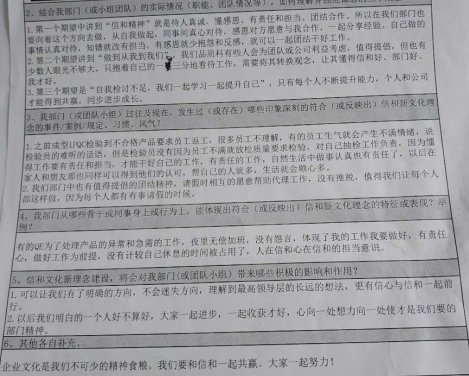 2、结合我部门（或小组团队）的实际情况（职能、团队情况等），如何理解并
1.第一个期望中讲到“信和精神”就是待人真诚、懂感恩、有责任和担当、团结合作，所以在我们部门也
要向着这个方向去做，从自我做起，同事间真心对待，感恩对方愿意与我合作，一起分享经验，自己做的
事情认真对待，知错就改有担当，有感恩就少抱怨和反感，就可以一起团结干好工作。
2.第二个期望讲到“做到从我到我们”，我们品质科有些人会为团队或公司利益考虑，值得提倡，但也有
少数人眼光不够大，只抱着自己的一 三分地看待工作，需要将其转换观念，让其懂得信和好、部门好、
我才好。
3.第三个期望是“自我检讨不足，我们一起学习一起提升自己”，只有每个人不断提升能力，个人和公司
才能得到共赢，同步进步成长。
3、我部门（或团队小组）过往及现在，发生过（或存在）哪些印象深刻的符合（或反映出）信和新文化理
念的事件/案例/规定、习惯、风气？
1.之前成型IPQC检验到不合格产品要求员工返工，很多员工不理解，有的员工生气就会产生不满情绪，说
检验员的难听的话语，但是检验员没有因为员工不满就放松质量要求检验，对自己抽检工作负责，因为懂
得工作要有责任和担当，才能干好自己的工作，有责任的工作，自然生活中做事认真也有责任了，以后在
家人和朋友那也同样可以得到他们的认可，帮自己的人就多，生活就会顺心多。
2.我们部门中也有值得提倡的团结精神，请假时相互的愿意帮助代理工作，没有推脱，值得我们让每个人
都这样做，因为每个人都有有事请假的时候。
4、我部门从哪些骨干或同事身上或行为上，能体现出符合（或反映出）信和新文化理念的特征或表现？示
例？
有的QE为了处理产品的异常和急需的工作，夜里无偿加班，没有怨言，体现了我的工作我要做好，有责任
心，做好工作为前提，没有计较自己休息的时间被占用了，人在信和心在信和的担当意识。
5、信和文化新理念建设，将会对我部门（或团队小组）带来哪些积极的影响和作用？
1.可以让我们有了明确的方向，不会迷失方向，理解到最高领导层的长远的想法，更有信心与信和一起前
行。
2.以后我们明白的一个人好不算好，大家一起进步，一起收获才好，心向一处想力向一处使才是我们要的
部门精神。
6、其他各自补充。
企业文化是我们不可少的精神食粮。我们要和信和一起共赢。大家一起努力！